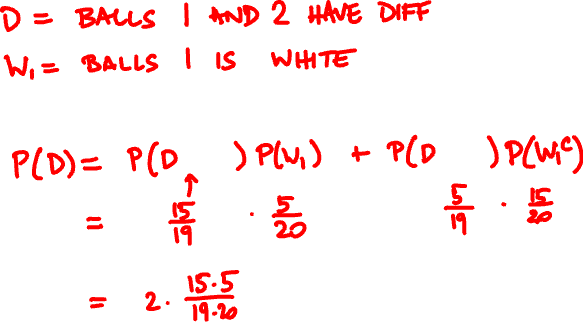 D = BALLS 1 AND 2 HAVE DIFF
W₁ = BALLS 1 IS WHITE
P(D) = P(D ) P(W₁) + P(D ) P(W₁ᶜ)
= 15/19 · 5/20 5/19 · 15/20
= 2 · 15·5/19·20